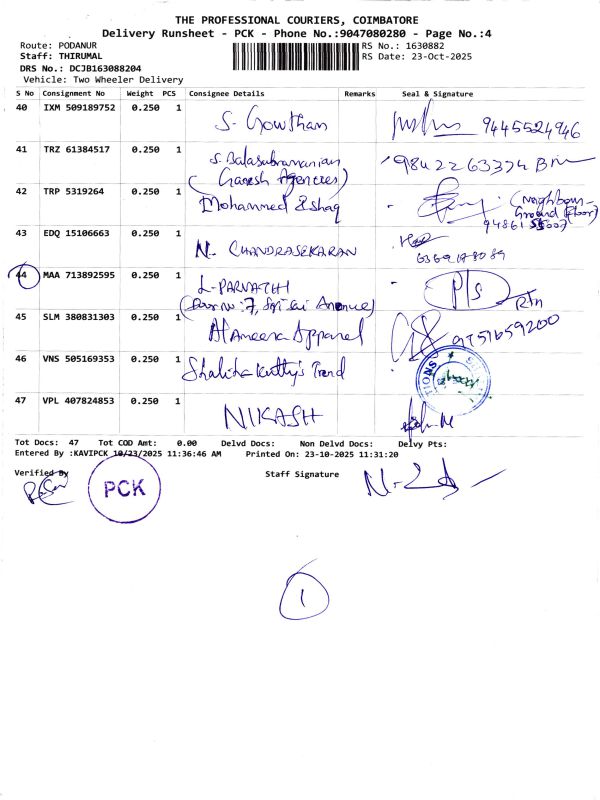 THE PROFESSIONAL COURIERS, COIMBATORE
Delivery Runsheet - PCK - Phone No.:9047080280 - Page No.:4
Route: PODANUR
Staff: THIRUMAL
DRS No.: DCJB163088204
Vehicle: Two Wheeler Delivery
RS No.: 1630882
RS Date: 23-Oct-2025
S No Consignment No Weight PCS Consignee Details Remarks Seal & Signature
40 IXM 509189752 0.250 1 S. Gowthan 9445524946
41 TRZ 61384517 0.250 1 S. Balasubramanian 9842263374
(Ganesh Agencies)
42 TRP 5319264 0.250 1 Mohammed Eshaq (Neighbour-
Ground floor)
43 EDQ 15106663 0.250 1 N. CHANDRASEKARAN
6369178089
44 MAA 713892595 0.250 1 L. PARVATHI P/S Rtn
(Door no: 7, Sri Sai Avenue)
45 SLM 380831303 0.250 1 Al Ameera Apparel 9751659200
46 VNS 505169353 0.250 1 Shalika Kutty's Trend
47 VPL 407824853 0.250 1 NIKASH
Tot Docs: 47 Tot COD Amt: 0.00 Delvd Docs: Non Delvd Docs: Delvy Pts:
Entered By :KAVIPCK 10/23/2025 11:36:46 AM Printed On: 23-10-2025 11:31:20
Verified By Staff Signature
PCK
1